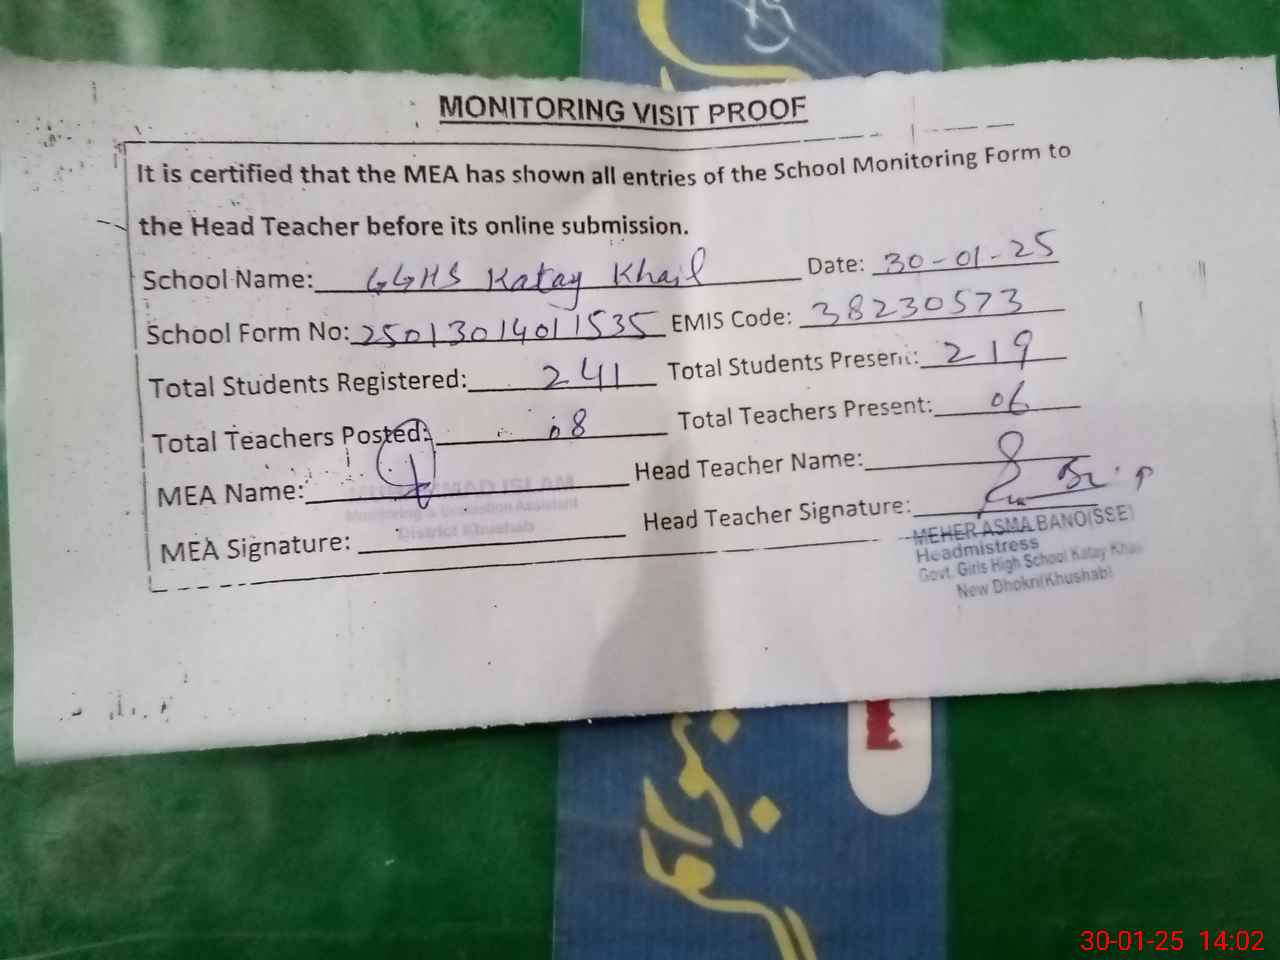 MONITORING VISIT PROOF
It is certified that the MEA has shown all entries of the School Monitoring Form to
the Head Teacher before its online submission.
School Name: GGHS Katay Khail Date: 30-01-25
School Form No: 25013014011535 EMIS Code: 38230573
Total Students Registered: 241 Total Students Present: 219
Total Teachers Posted: 08 Total Teachers Present: 06
MEA Name: Head Teacher Name:
ISLAM
Monitoring & Evaluation Assistant
District Khushab
MEA Signature: Head Teacher Signature:
MEHER ASMA BANO(SSE)
Headmistress
Govt. Girls High School Katay Khail
New Dhokri(Khushab)
30-01-25 14:02